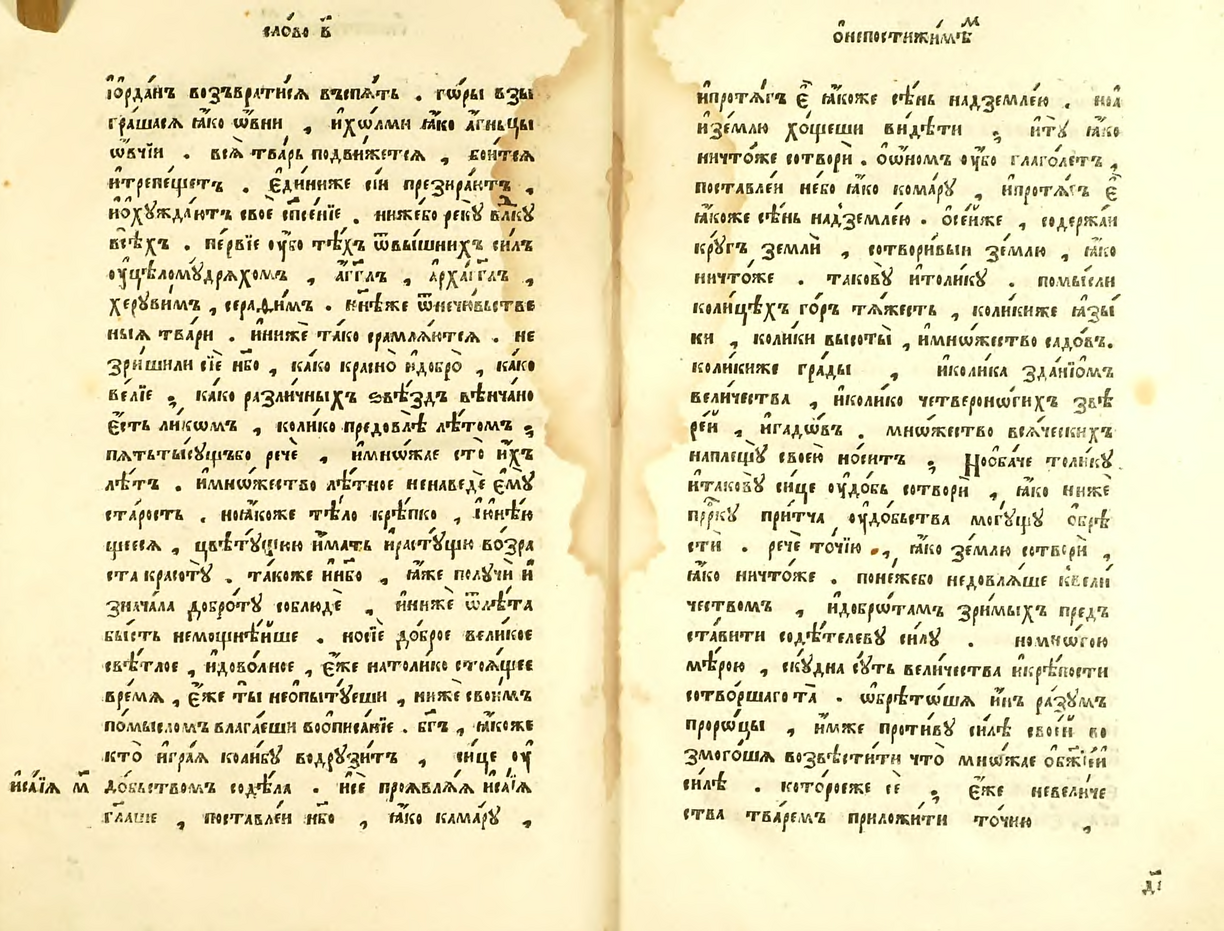 сло́во в҃
і҆ѻрда́нъ возъврати́сѧ въспѧ́ть . го́ры взы
гра́шасѧ ꙗ҆́ко ѻ҆внѝ , и҆хо́лми ꙗ҆́ко а҆́гньцы
ѻ҆́вчїи . всѧ̀ тва́рь подви́жетсѧ , бои́тсѧ
и҆трепе́щетъ . є҆ди́ниже сі́и презира́ютъ ,
и҆ѡ҆хужда́ютъ своѐ сп҃се́нїе . ни́жебо рекꙋ̀ влⷣкꙋ
всѣ́хъ . пе́рвїе ᲂу҆́бо тѣ́хъ ѿвы́шнихъ си́лъ
ᲂу҆цѣломꙋ́дрѧхомъ , а҆́гг҃лъ , а҆рха́гг҃лъ ,
херꙋви́мъ , серафи́мъ . кни́мже ѿнечю́вьстве
ныѧ тва́ри . и҆ниже́ тако срамлѧ́ютсѧ . не
зри́шили сїѐ нб҃о , ка́ко красно̀ и҆добро̀ , ка́ко
ве́лїе ; ка́ко разли́чныхъ ѕвѣ́здъ вѣнча́но
є҆́сть ли́комъ , коли́ко предовлѣ̀ лѣ́томъ ;
пѧ́тьтысꙋщъбо речѐ , и҆мно́жае сто̀ и҆́хъ
лѣ́тъ . и҆мно́жество лѣ́тное ненаведѐ є҆мꙋ̀
ста́рость . ноꙗ҆́коже тѣ́ло крѣ́пко , и҆ю҆нѣ́ю
щеесѧ , цвѣтꙋ́щꙋю и҆́мать и҆растꙋ́щꙋю во́зра
ста красотꙋ̀ . та́коже и҆нб҃о , ꙗ҆́же полꙋчѝ и҆
знача́ла добро́тꙋ соблюдѐ , и҆ниже́ ѿлѣ́та
бы́сть немощнѣ́йше . носїѐ до́брое вели́кое
свѣ́тлое , и҆дово́лное , є҆́же нато́лико стоѧ́щее
вре́мѧ , є҆́же ты̀ неѡ҆пытꙋ́еши , ниже́ свои́мъ
по́мысломъ влага́еши воѡ҆писа́нїе . бг҃ъ , ꙗ҆́коже
кто̀ и҆гра́ѧ коли́бꙋ водрꙋ́зитъ , си́це ᲂу҆
до́бьствомъ содѣ́ла . и҆сѐ проѧвлѧ́ѧ и҆са́їѧ
гл҃аше , поста́влеи нб҃о , ꙗ҆́ко кама́рꙋ ,
и҆са́їѧ м҃
ѡ҆непостижи́мѣⷨ
и҆протѧ́гъ є҆̀ ꙗ҆́коже сѣ́нь надземле́ю . но̀а
и҆зе́млю хо́щеши ви́дѣти ; и҆тꙋ̀ ꙗ҆́ко
ничто́же сотворѝ . ѡ҆ѻ҆́номъ ᲂу҆́бо глаго́летъ ,
поста́влеи не́бо ꙗ҆́ко кома́рꙋ , и҆протѧ́гъ є҆̀
ꙗ҆́коже сѣ́нь надземле́ю . ѡ҆се́йже , содержа́и
крꙋ́гъ землѝ , сотвори́выи зе́млю , ꙗ҆́ко
ничто́же . такову̀ и҆толи́кꙋ . помы́сли
коли́цѣхъ го́ръ тѧ́жесть , коли́киже ꙗ҆зы́
ки , коли́ки высоты̀ , и҆мно́жество садо́въ .
коли́киже гра́ды , и҆коли́ка зда́нїомъ
вели́чества , и҆коли́ко четвероно́гихъ звѣ
ре́и , и҆га́довъ . мно́жество всѧ́ческихъ
наплещꙋ̀ свое́ю но́ситъ ; Ноѡ҆ба́че толи́кꙋ
и҆такову̀ си́це ᲂу҆до́бь сотворѝ , ꙗ҆́ко ниже́
пррⷪ҇кꙋ при́тча ᲂу҆до́бьства могꙋ́щꙋ ѡ҆брѣ
сти́ . рече́ то́чїю , ꙗ҆́ко зе́млю сотворѝ ,
ꙗ҆́ко ничто́же . поне́жебо недовлѧ́ше квели́
чествомъ , и҆добро́тамъ зри́мыхъ пред̾
ста́вити содѣ́телевꙋ си́лꙋ . номно́гою
мѣ́рою , скꙋ́дна сꙋ́ть вели́чества и҆крѣ́пости
сотво́ршаго та̀ . ѡ҆брѣто́шѧ и҆́нъ ра́зꙋмъ
проро́цы , и҆́мже проти́вꙋ си́лѣ свое́й во
змого́шѧ возвѣсти́ти что̀ мно́жае ѡ҆бж҃їей
си́лѣ . кото́роеже сѐ ; є҆́же невели́че
ства тва́ремъ приложи́ти то́чию ,
д҃і